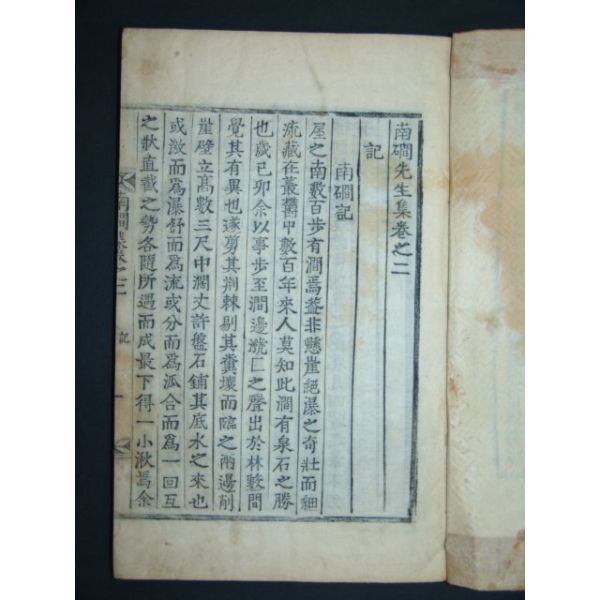 南磵先生集卷之二
記
南磵記
屋之南數百步有澗焉蓋非懸崖絕瀑之奇壯而細
流藏在叢欝中數百年來人莫知此澗有泉石之勝
也歲己卯余以事步至澗邊㶁匚之聲出於林藪間
覺其有異也遂剪其荆棘剔其糞壤而臨之兩邊削
崖壁立高數三尺中濶丈許盤石鋪其底水之來也
或激而爲瀑舒而爲流或分而爲派合而爲一回互
之狀直截之勢各隨所遇而成最下得一小湫焉余
南磵集卷之二
記
一